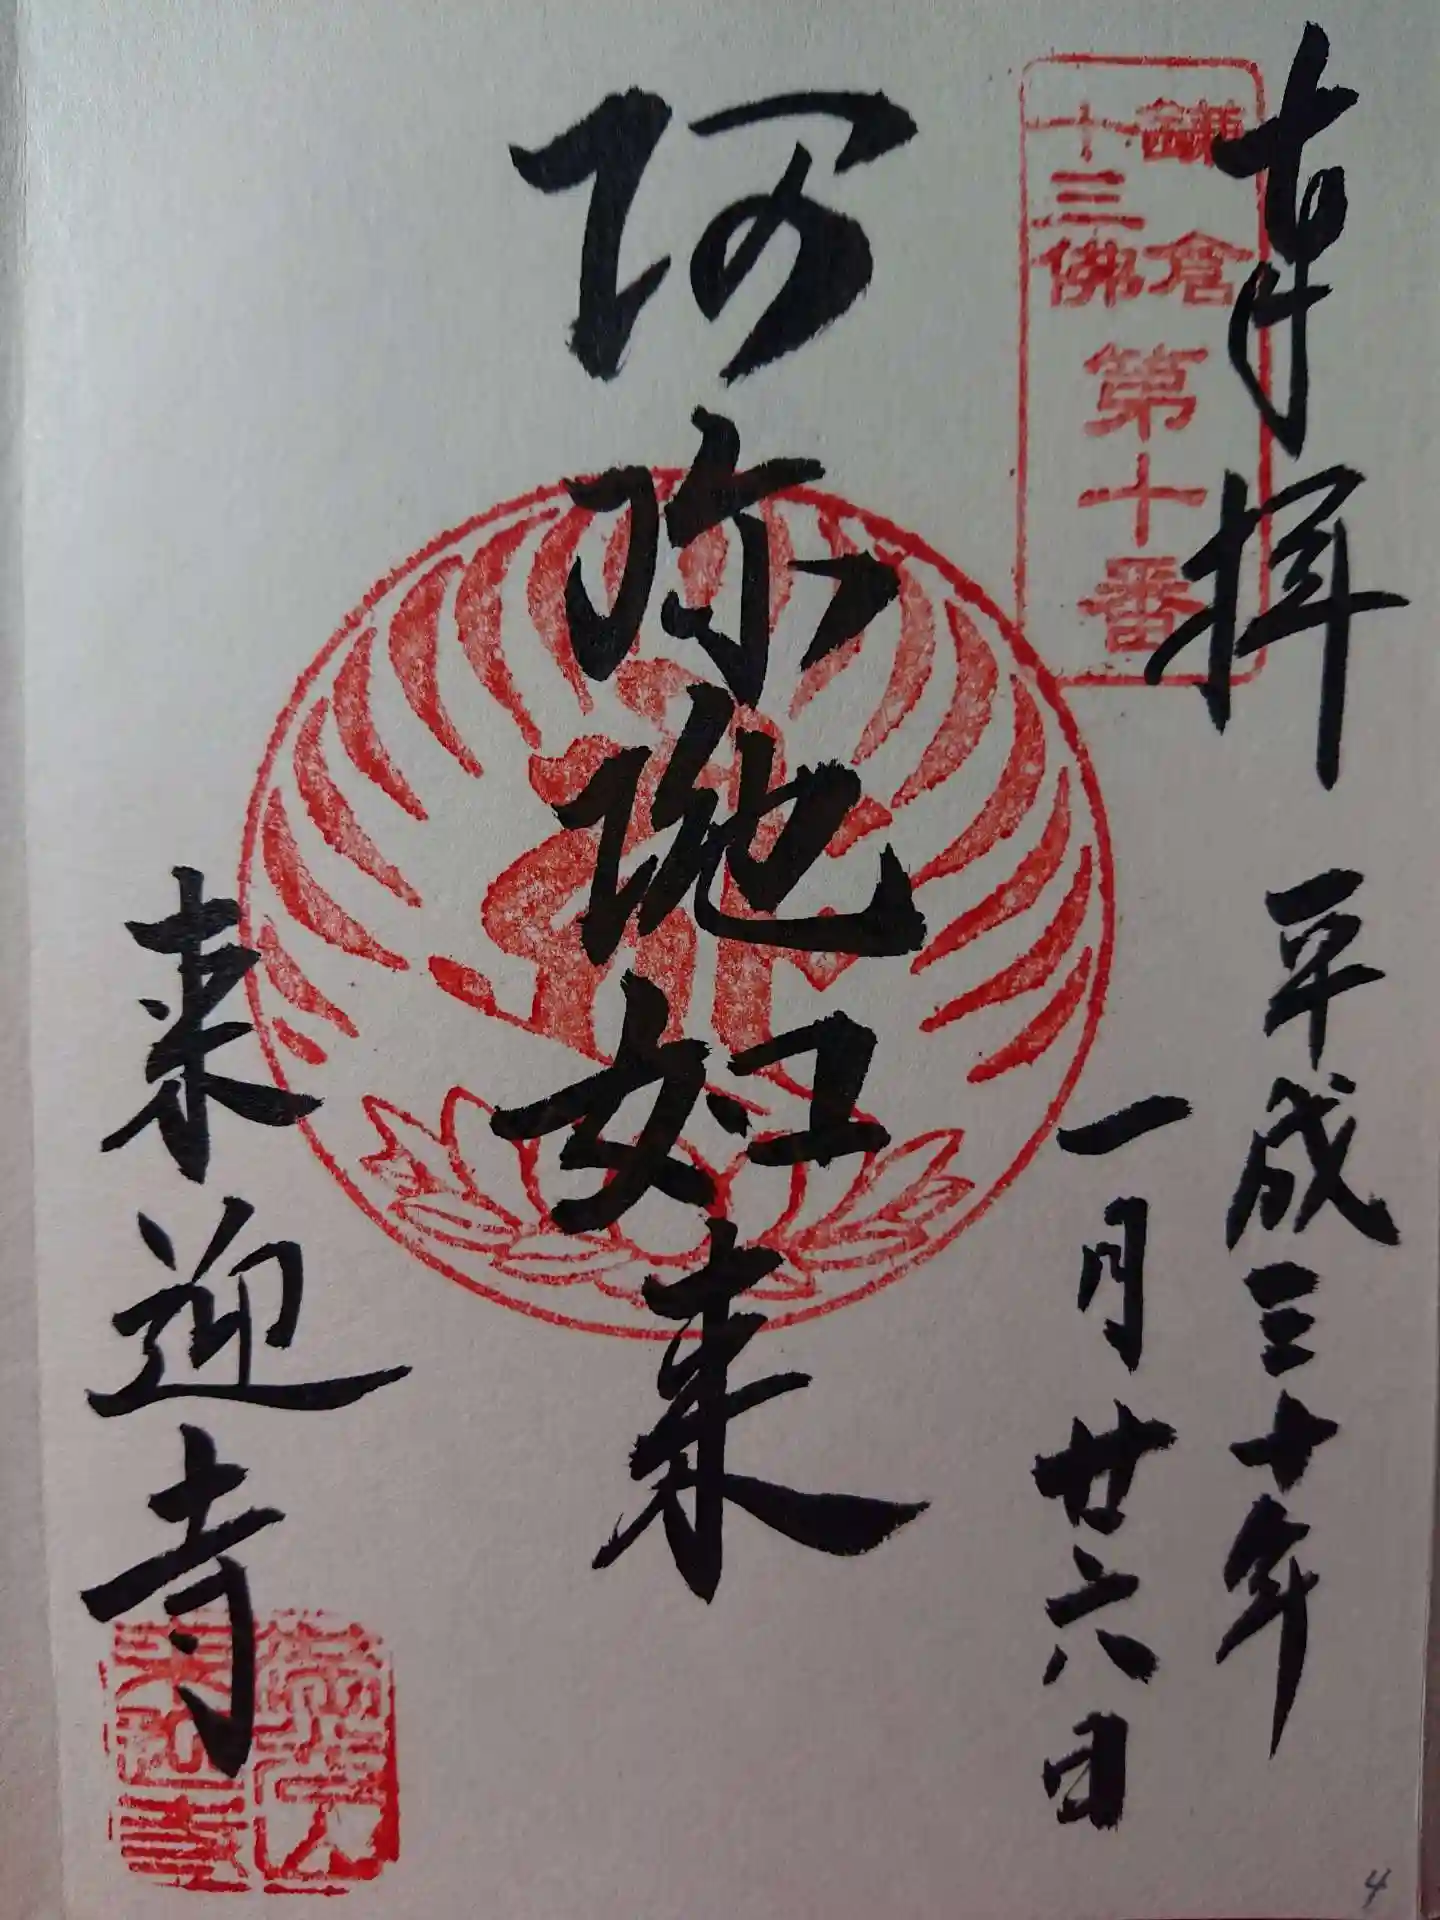 奉拝
鎌倉
十三佛
第十番
平成三十年
一月廿六日
阿弥陀如来
来迎寺
4